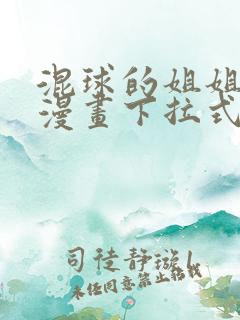 混球的姐姐
漫畫下拉式
司徒静璇l
未经同意禁止转载